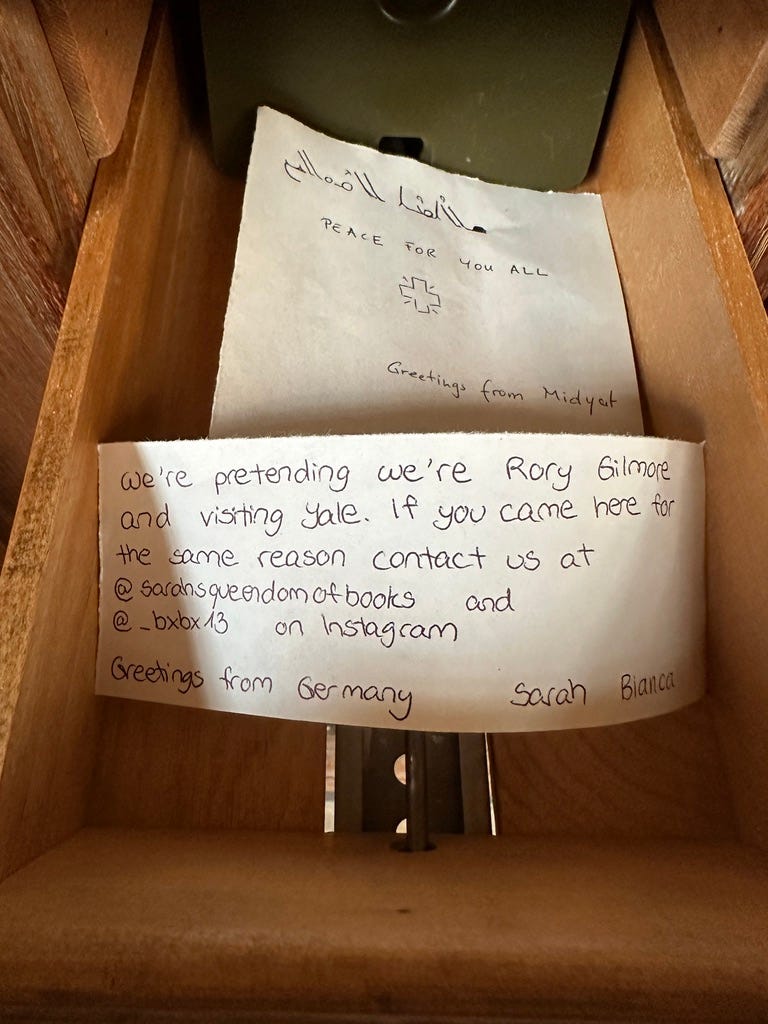 PEACE FOR YOU ALL
Greetings from Midyat
We're pretending we're Rory Gilmore
and visiting Yale. If you came here for
the same reason contact us at
@sarahsqueendomofbooks and
@_bxbx13 on Instagram
Greetings from Germany Sarah Bianca